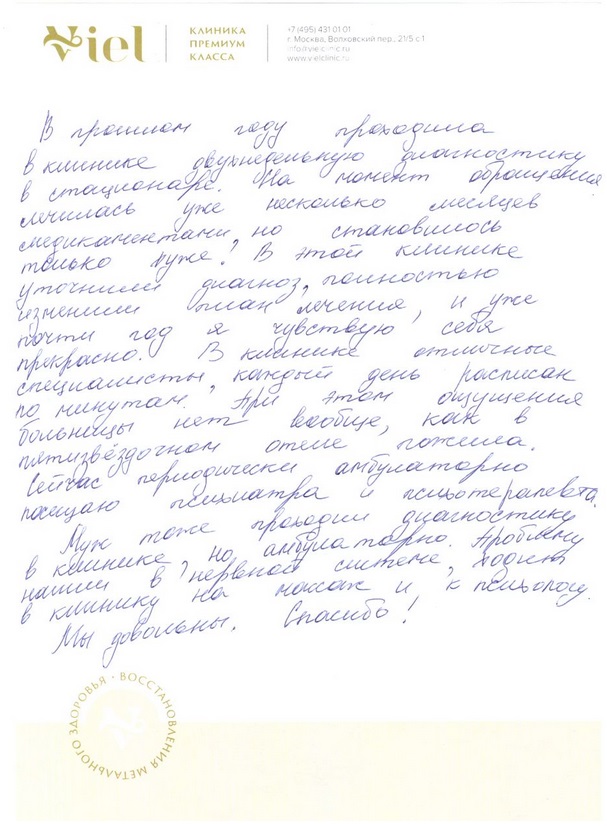 Viel
КЛИНИКА
ПРЕМИУМ
КЛАССА
+7 (495) 431 01 01
г. Москва, Волковский пер., 21/5 с.1
info@vielclinic.ru
www.vielclinic.ru
В прошлом году проходила
в клинике двухнедельную диагностику
в стационаре. На момент обращения
лечилась уже несколько месяцев
медикаментами, но становилось
только хуже. В этой клинике
уточнили диагноз, полностью
изменили план лечения, и уже
почти год я чувствую себя
прекрасно. В клинике отличные
специалисты, каждый день расписан
по минутам. При этом ощущения
больницы нет вообще, как в
пятизвёздочном отеле пожила.
Сейчас периодически амбулаторно
посещаю психиатра и психотерапевта.
Муж тоже проходил диагностику
в клинике, но амбулаторно. Проблему
нашли в нервной системе, ходит
в клинику на массаж и к психологу.
Мы довольны. Спасибо!
ВОССТАНОВЛЕНИЯ МЕТАЛЬНОГО ЗДОРОВЬЯ